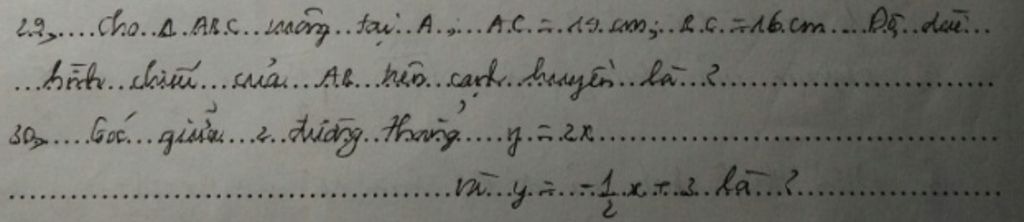 29, Cho Δ ABC vuông tại A; AC = 19 cm; BC = 16 cm Độ dài
hình chiếu của AB trên cạnh huyền là ?
30, Góc giữa 2 đường thẳng y = 2x
và y = -1/2 x + 3 là ?